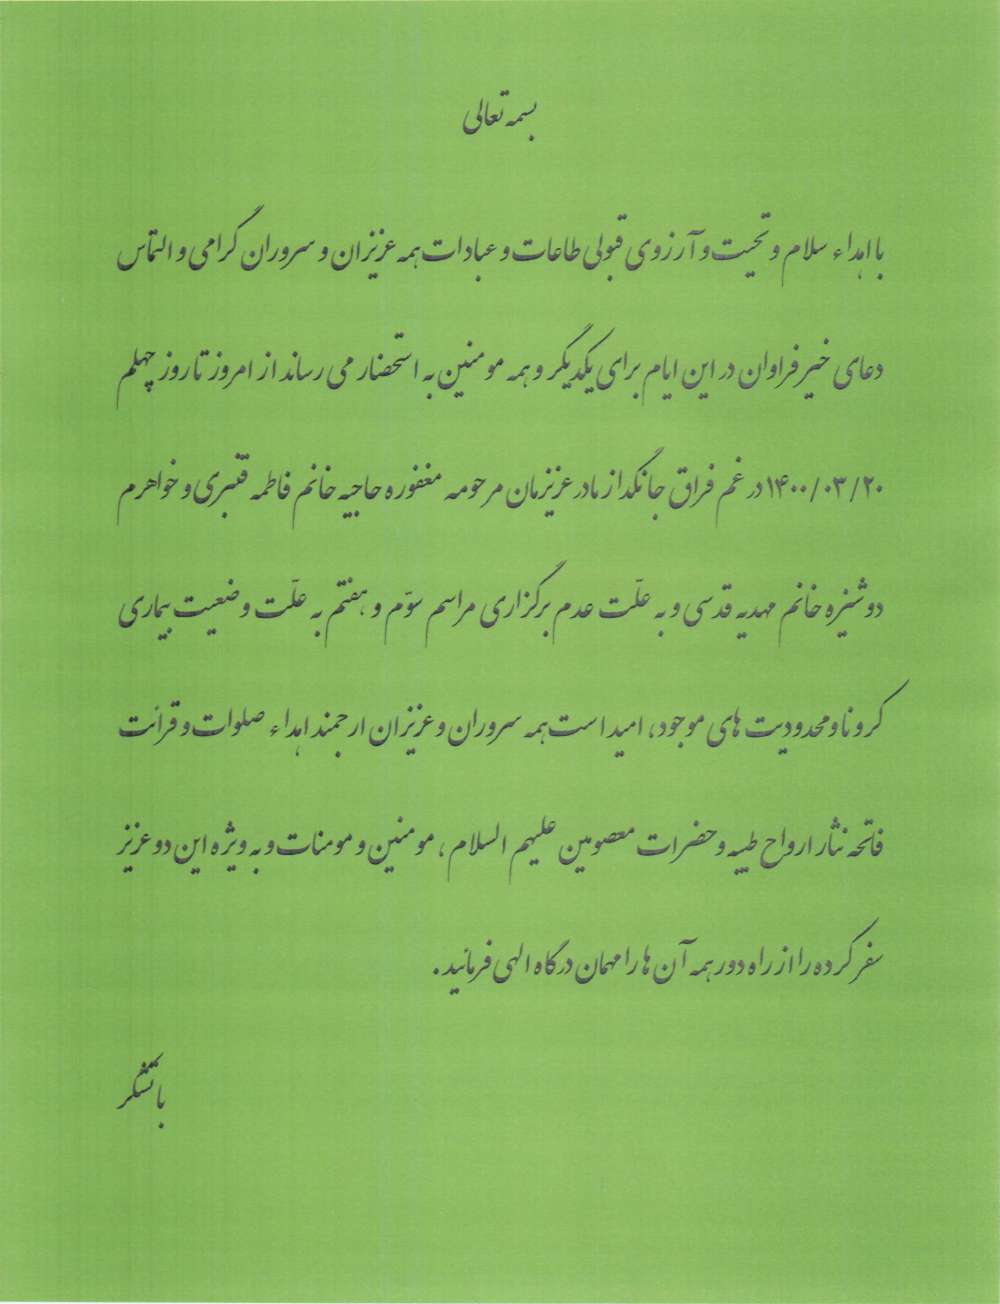 بسمه تعالی
با اهداء سلام و تحیت و آرزوی قبولی طاعات و عبادات همه عزیزان و سروران گرامی و التماس
دعای خیر فراوان در این ایام برای یکدیگر و همه مومنین به استحضار می رساند از امروز تا روز چهلم
۱۴۰۰/۰۳/۲۰ در غم فراق جانگداز مادر عزیزمان مرحومه مغفوره حاجیه خانم فاطمه قنبری و خواهرم
دوشیزه خانم مهدیه قدسی و به علّت عدم برگزاری مراسم سوّم و هفتم به علّت وضعیت بیماری
کرونا و محدودیت های موجود، امید است همه سروران و عزیزان ارجمند اهداء صلوات و قرائت
فاتحه نثار ارواح طیبه و حضرات معصومین علیهم السلام، مومنین و مومنات و به ویژه این دو عزیز
سفر کرده را از راه دور همه آن ها را مهمان درگاه الهی فرمائید.
با تشکر